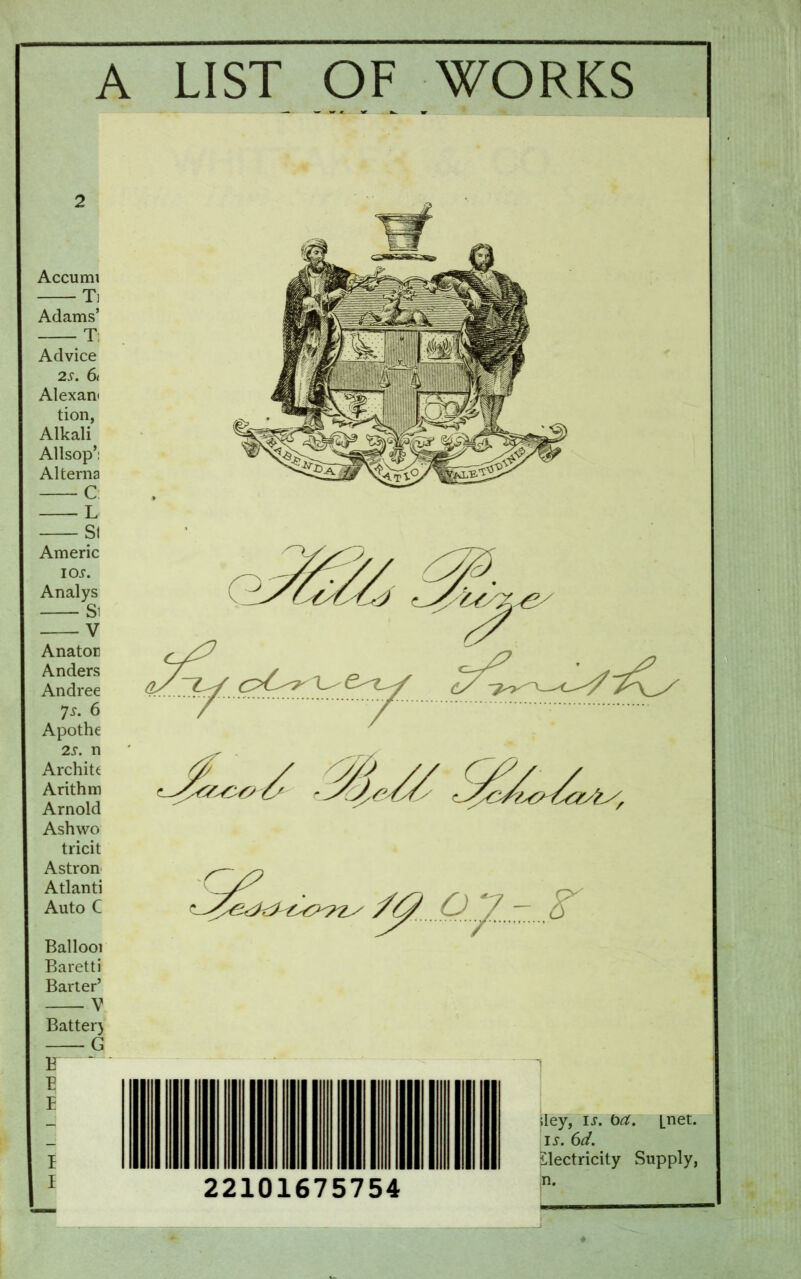 A LIST OF WORKS
2
Accumu
—— Tr
Adams'
—— T
Advice
2s. 6
Alexan
tion,
Alkali
Allsop's
Alterna
—— C
—— L
—— St
Americ
10s.
Analys
—— St
—— V
Anaton
Anders
Andree
7s. 6
Apothe
2s. n
Archite
Arithm
Arnold
Ashwo
tricit
Astron
Atlanti
Auto C
Balloo
Baretti
Barter'
—— V
Battery
—— G
HABENDA RATIO VALETUDINIS
Hills Prize
Jacob Bell Scholar,
Session 1907-8
sley, 1s. 6d. [net.
1s. 6d.
Electricity Supply,
n.
22101675754